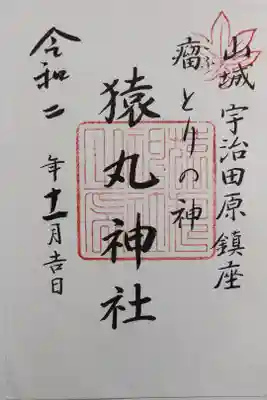 山城 宇治田原鎮座
瘤とりの神
猿丸神社
令和二年十一月吉日